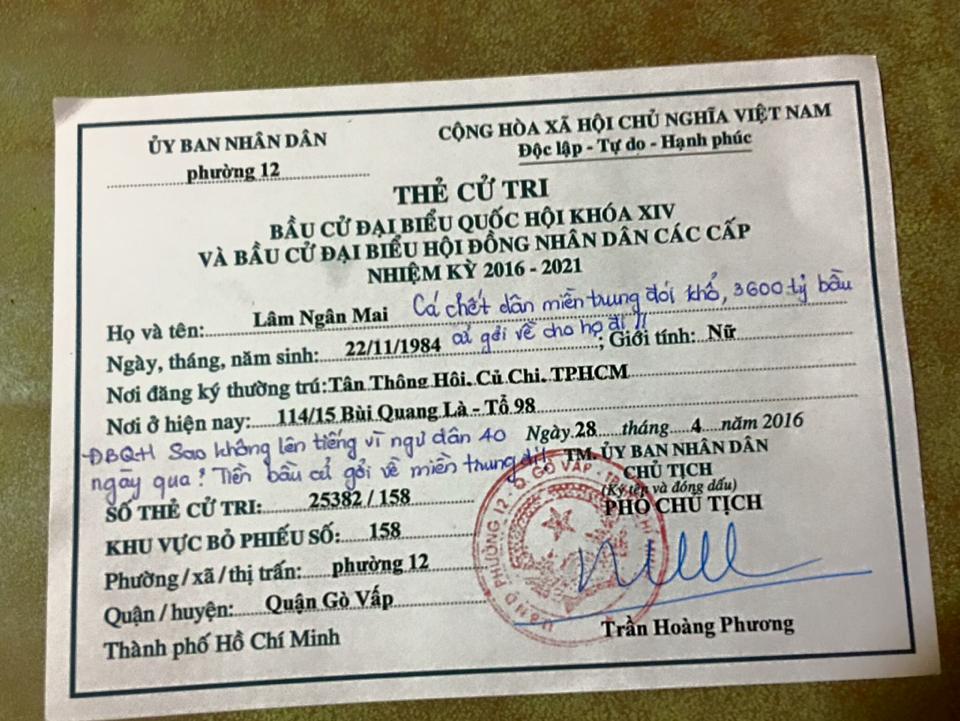 ỦY BAN NHÂN DÂN
phường 12
CỘNG HÒA XÃ HỘI CHỦ NGHĨA VIỆT NAM
Độc lập - Tự do - Hạnh phúc
THẺ CỬ TRI
BẦU CỬ ĐẠI BIỂU QUỐC HỘI KHÓA XIV
VÀ BẦU CỬ ĐẠI BIỂU HỘI ĐỒNG NHÂN DÂN CÁC CẤP
NHIỆM KỲ 2016 - 2021
Cá chết dân miền trung đói khổ, 3600 tỷ bầu
Họ và tên: Lâm Ngân Mai
cử gởi về cho họ đi !!
Ngày, tháng, năm sinh: 22/11/1984 ; Giới tính: Nữ
Nơi đăng ký thường trú: Tân Thông Hôi, Củ Chi, TPHCM
Nơi ở hiện nay: 114/15 Bùi Quang Là - Tổ 98
- ĐBQH Sao không lên tiếng vì ngư dân 40
ngày qua? Tiền bầu cử gởi về miền trung đi!
Ngày 28 tháng 4 năm 2016
TM. ỦY BAN NHÂN DÂN
CHỦ TỊCH
(Ký tên và đóng dấu)
PHÓ CHỦ TỊCH
SỐ THẺ CỬ TRI: 25382 / 158
KHU VỰC BỎ PHIẾU SỐ: 158
Phường/xã/thị trấn: phường 12
Quận/huyện: Quận Gò Vấp
Thành phố Hồ Chí Minh
Trần Hoàng Phương
U.B.N.D PHƯỜNG 12 - Q. GÒ VẤP